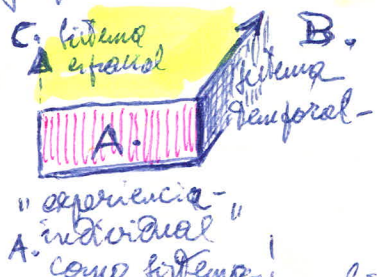 C. Sistema
B.
sistema
temporal-
A.
"experiencia-
individual"
A.
como sistema